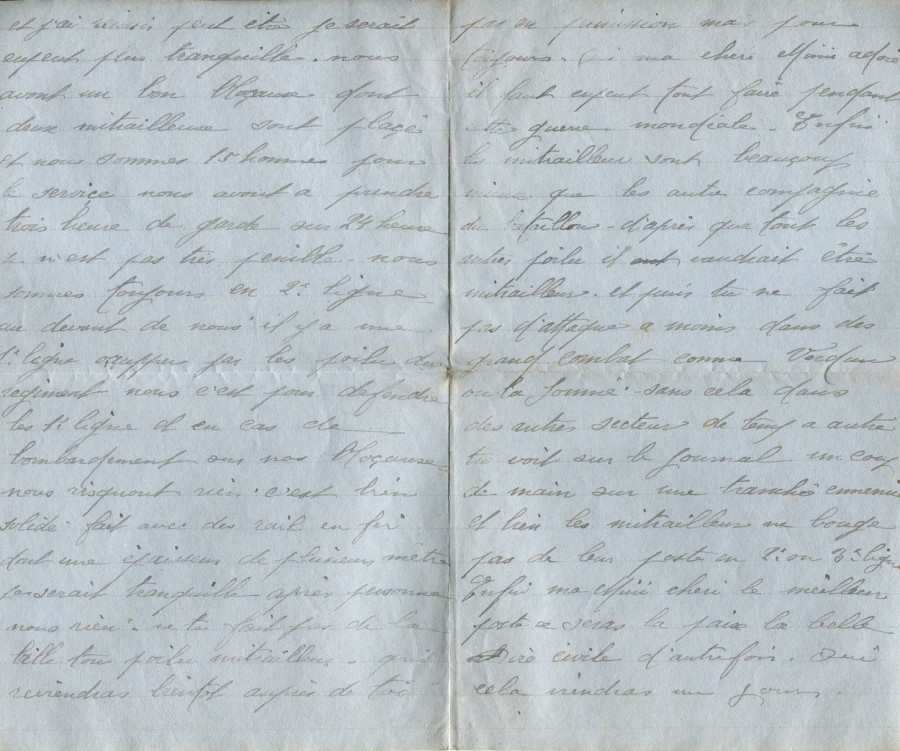 et j'ai réussi peut etre je serait
enfent plus tranquille. nous
avont un bon Blocause dont
deux mitrailleuse sont placé
et nous sommes 15 hommes pour
le service nous avont a prendre
trois heure de garde sur 24 heure
n'est pas très penille. nous
sommes toujours en 2e ligne
au devant de nous il y a une
1e ligne occupper pas les poilu du
regiment nous c'est pour defendre
les 1e ligne et en cas de
bombardement sur nos Blocause
nous risquont rien. c'est bien
solide fait avec des rail en fer
dont une épaisseur de plusieurs mètre
je serait tranquille après personne
nous rien. ne te fait pas de la
bille ton poilu mitrailleur. qui
reviendras bientot auprès de toi
pas en permission mais pour
toujours. ma chere Mimi adoré
il faut enfent tout faire pendant
cette guerre mondiale. Enfin
les mitrailleur sont beaucoup
mieux que les autre compagnie
du batillon. d'après que tout les
autres poilu il vaudrait être
mitrailleur. et puis tu ne fait
pas d'attaque a moins dans des
grand combat comme Verdun
ou la Somme. sans cela dans
des autres secteur de temp a autre
tu voit sur le Journal un coup
de main sur une tranché ennemie
et bien les mitrailleur ne bouge
pas de leur poste en 2e ou 3e ligne
Enfin ma Mimi cheri le meilleur
poste se seras la paix la belle
vie civile d'autrefois.
cela viendras un jour.